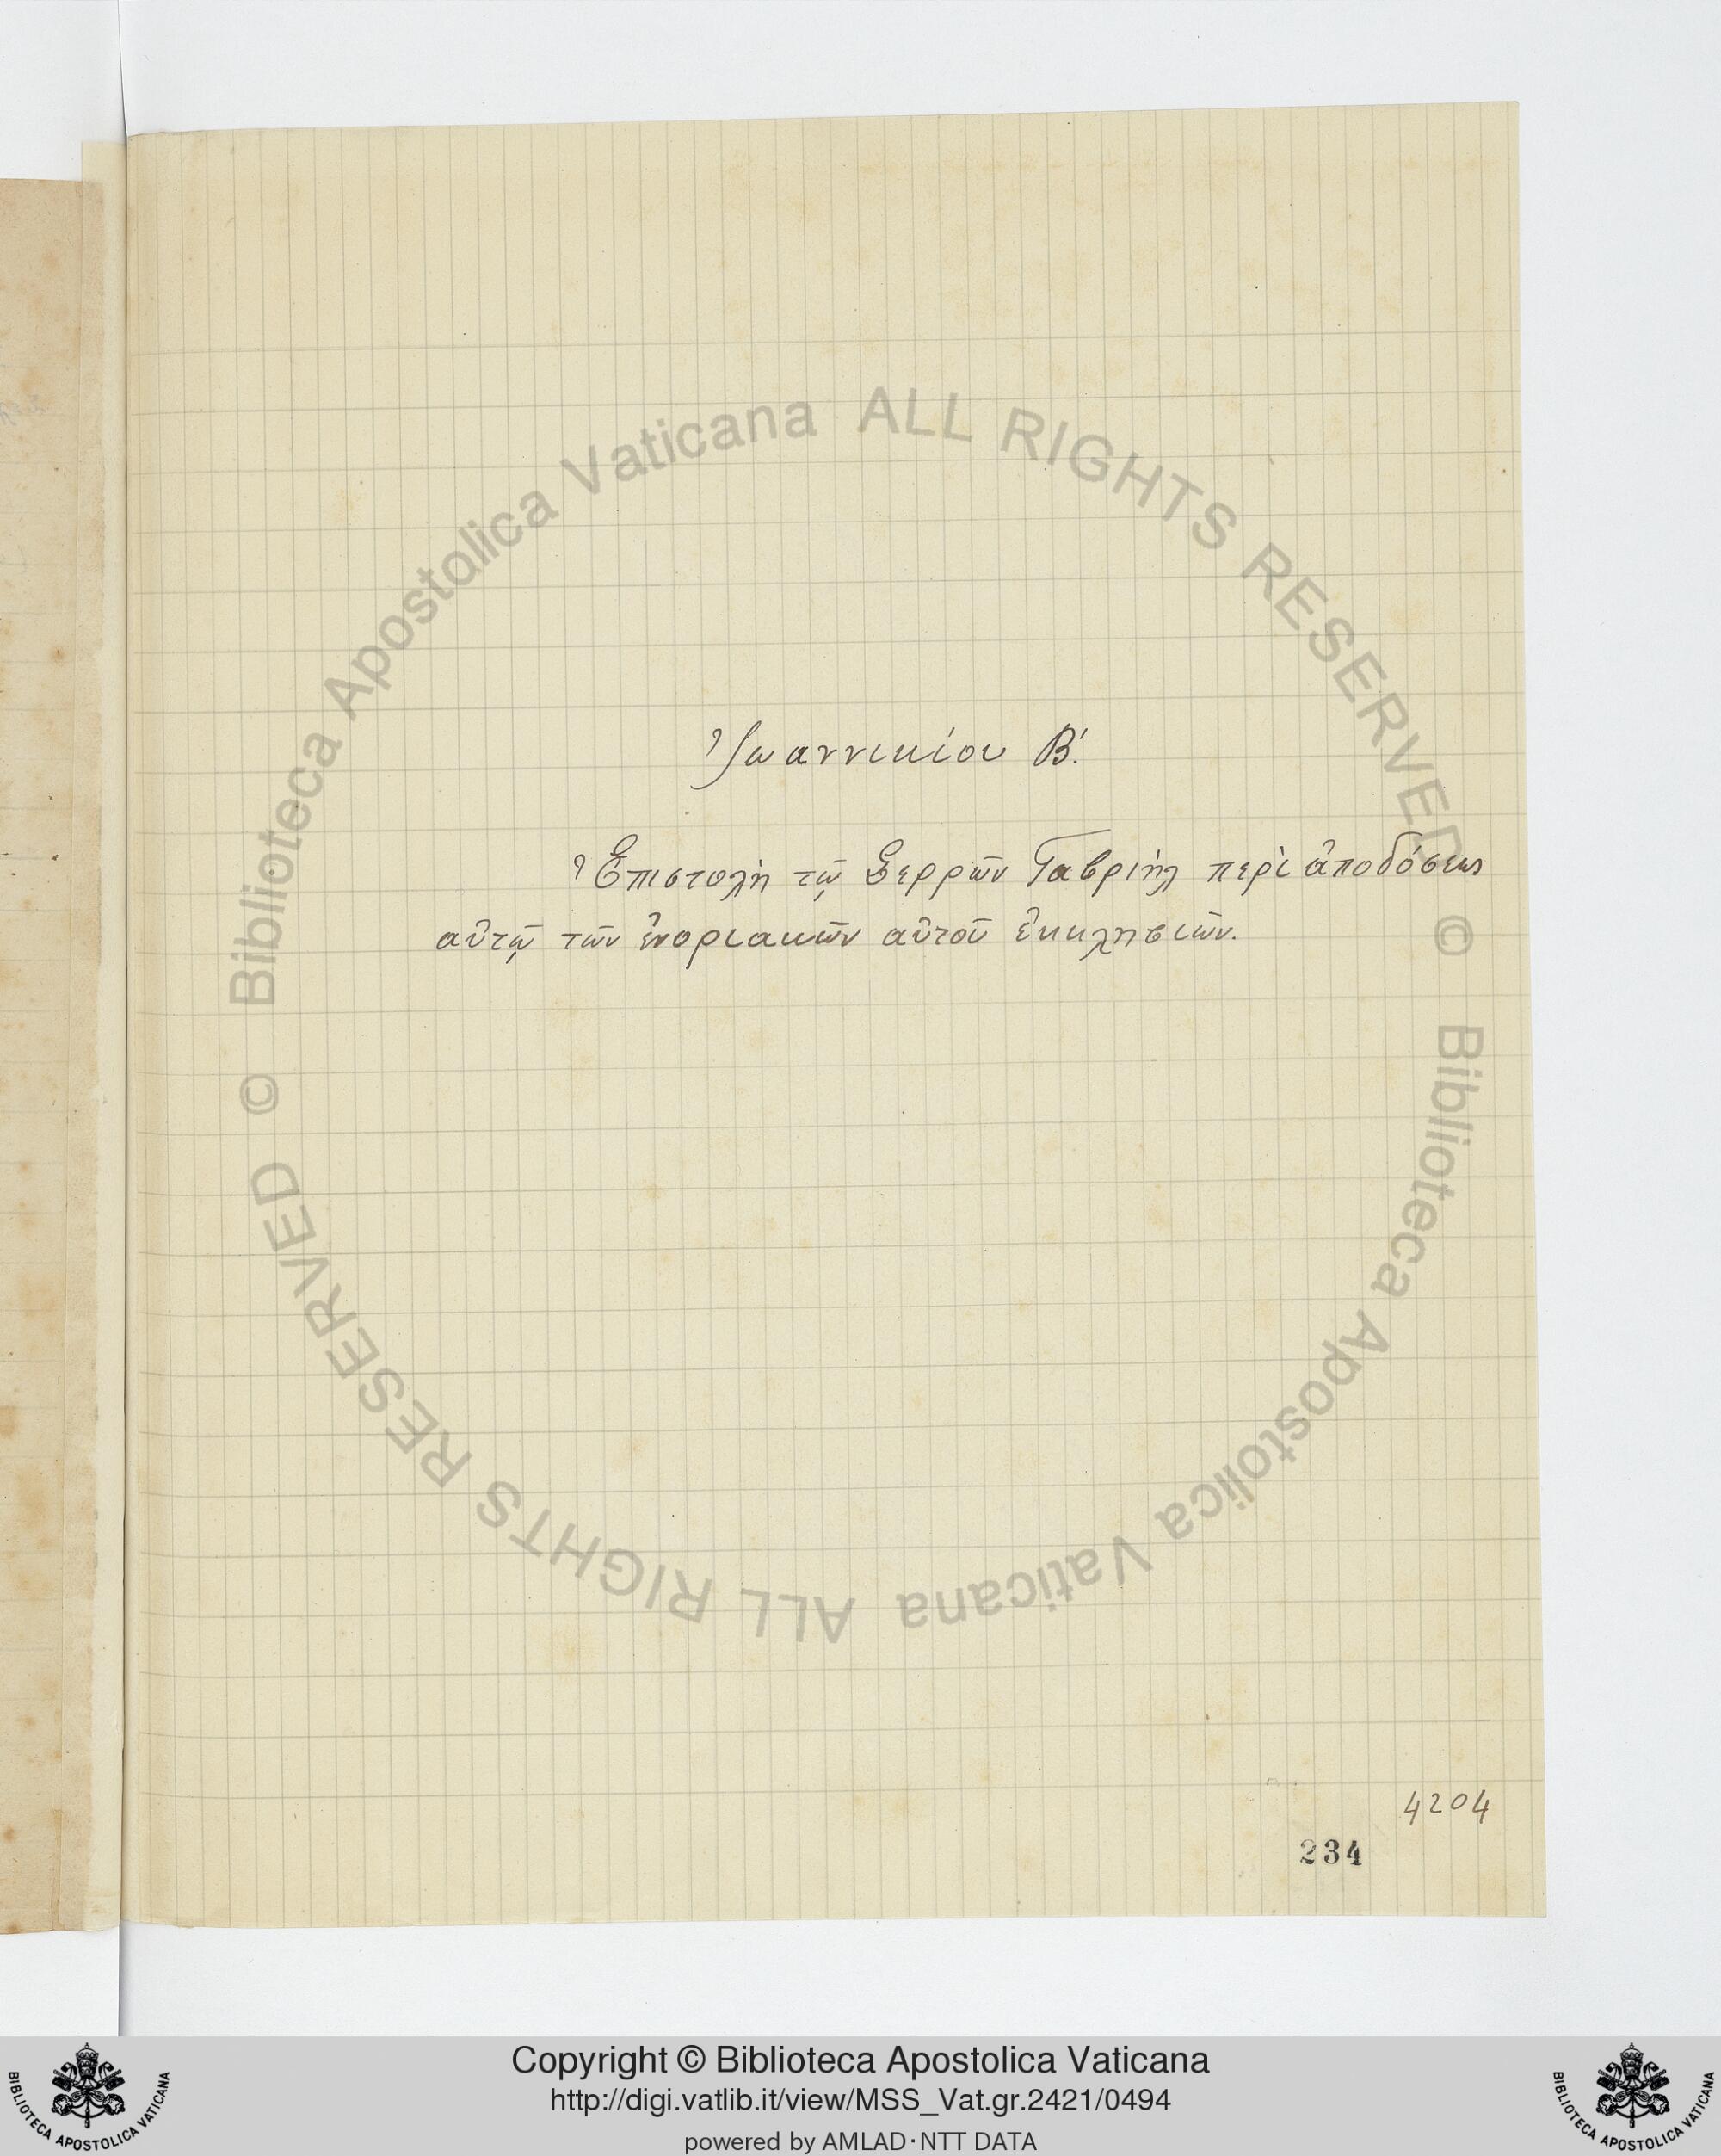 Ἰωαννικίου Β΄.
Ἐπιστολὴ τῷ Σερρῶν Γαβριὴλ περὶ ἀποδόσεως
αὐτῷ τῶν ἐνοριακῶν αὐτοῦ ἐκκλησιῶν.
4204
234
© Biblioteca Apostolica Vaticana ALL RIGHTS RESERVED
© Biblioteca Apostolica Vaticana ALL RIGHTS RESERVED
Copyright © Biblioteca Apostolica Vaticana
http://digi.vatlib.it/view/MSS_Vat.gr.2421/0494
powered by AMLAD·NTT DATA
BIBLIOTECA APOSTOLICA VATICANA
BIBLIOTECA APOSTOLICA VATICANA